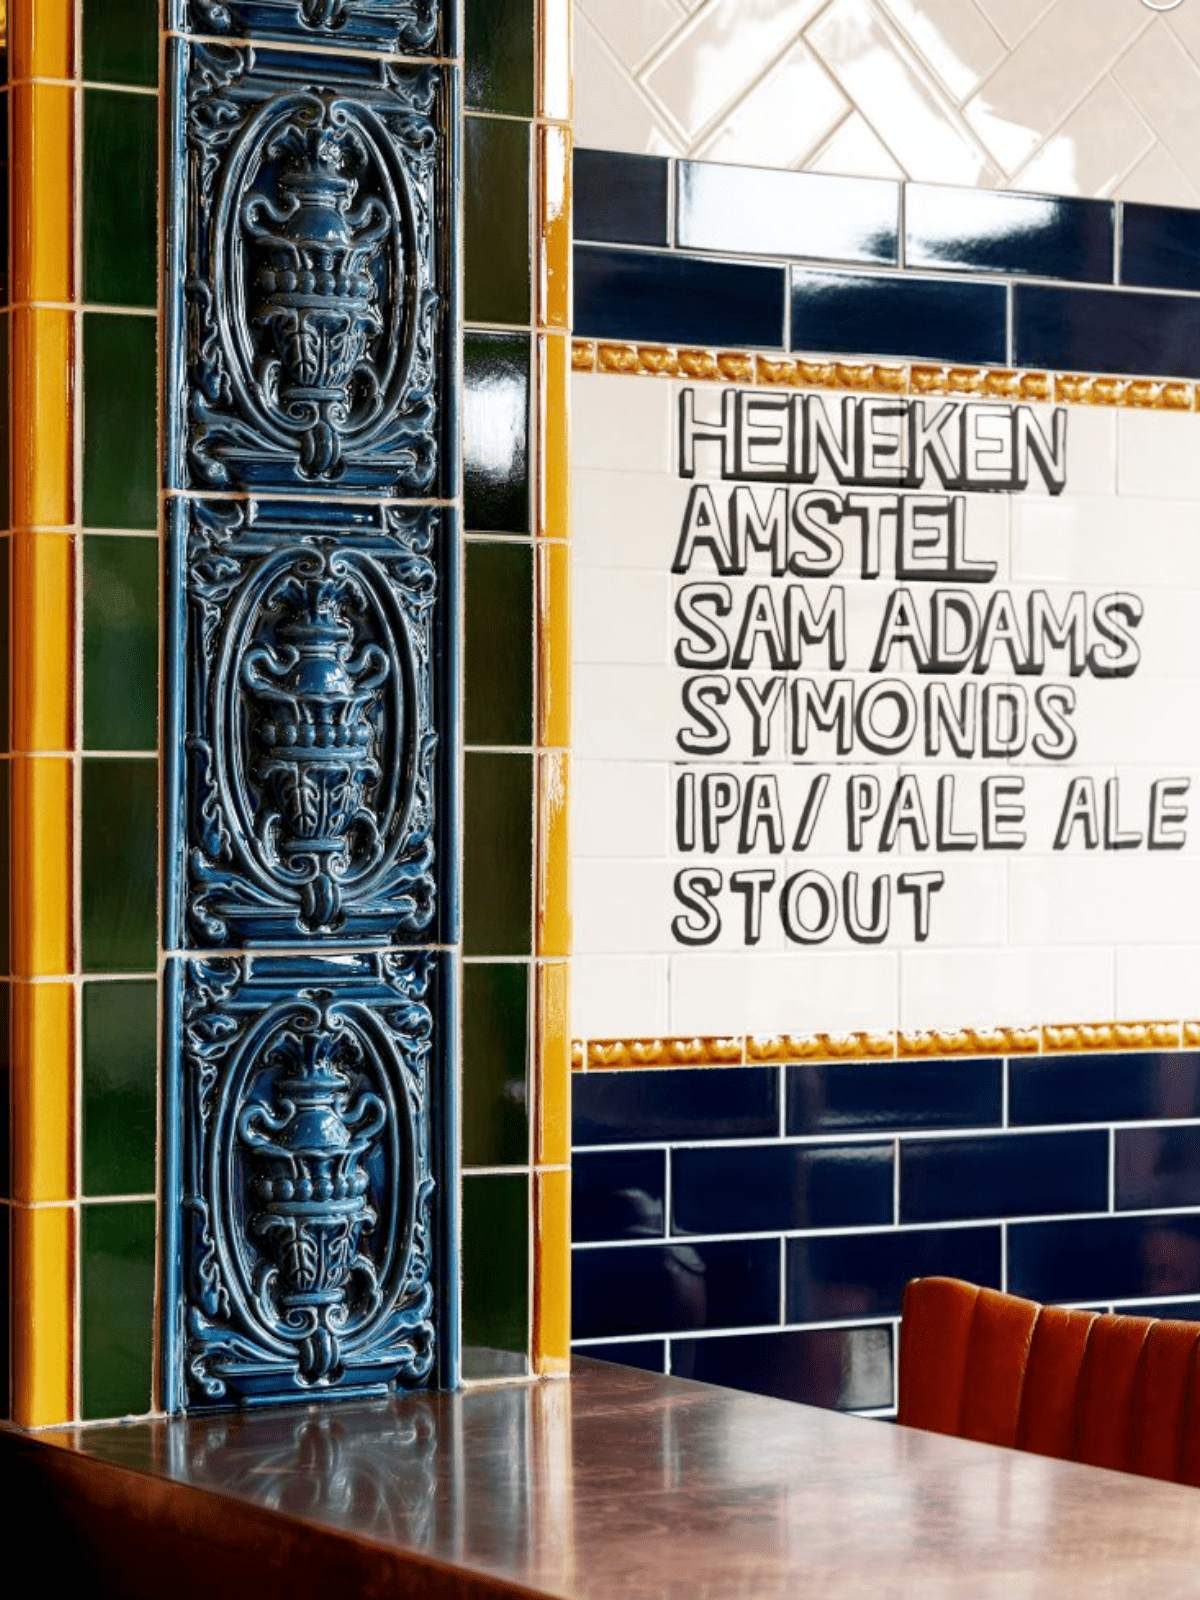 HEINEKEN
AMSTEL
SAM ADAMS
SYMONDS
IPA/PALE ALE
STOUT